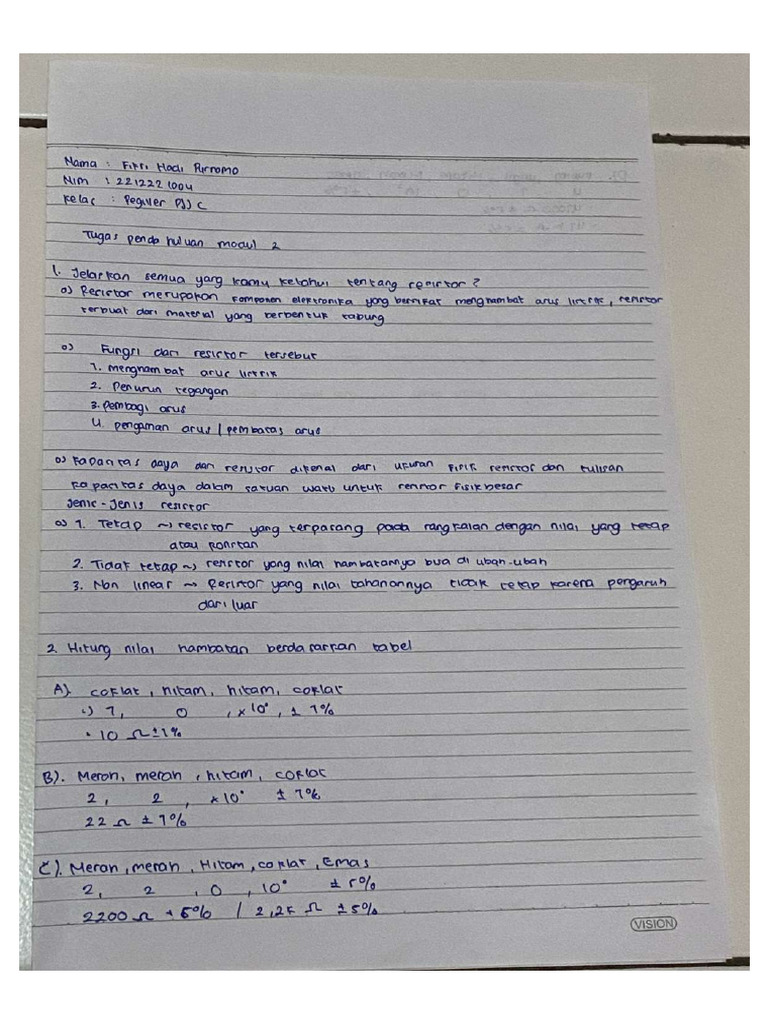 Nama : Fikri Hadi Purnomo
Nim : 2212221004
Kelas : Reguler PJJ C
Tugas pendahuluan modul 2
1. Jelaskan semua yang kamu ketahui tentang resistor ?
o) Resistor merupakan komponen elektronika yang bersifat menghambat arus listrik, resistor
terbuat dari material yang berbentuk tabung
o) Fungsi dari resistor tersebut
1. menghambat arus listrik
2. Penurun tegangan
3. Pembagi arus
4. pengaman arus / pembatas arus
o) Kapasitas daya dari resistor dikenal dari ukuran fisik resistor dan tulisan
kapasitas daya dalam satuan watt untuk resistor fisik besar
Jenis - Jenis resistor
o) 1. Tetap ~> resistor yang terpasang pada rangkaian dengan nilai yang tetap
atau konstan
2. Tidak tetap ~> resistor yang nilai hambatannya bisa di ubah-ubah
3. Non linear ~> Resistor yang nilai tahanannya tidak tetap karena pengaruh
dari luar
2. Hitung nilai hambatan berdasarkan tabel
A). coklat, hitam, hitam, coklat
:) 1, 0 , x 10°, ± 1%
• 10 Ω ± 1%
B). Merah, merah, hitam, coklat
2, 2, x 10° ± 1%
22 Ω ± 1%
C). Merah, merah, Hitam, coklat, Emas
2, 2, 0, 10° ± 5%
2200 Ω + 5% / 2,2k Ω ± 5%
VISION